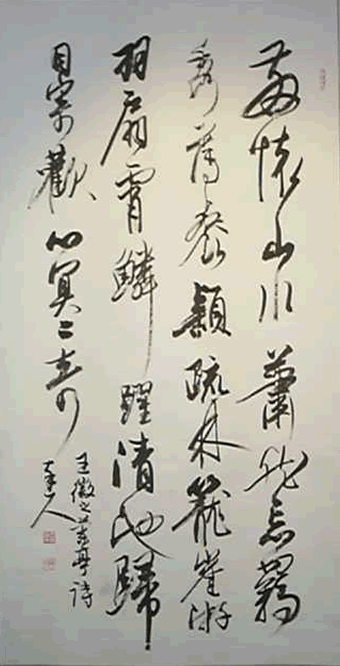 散懷山水蕭然忘羈
秀薄粲穎疏林籠崖游
羽扇霄鱗躍清池歸
目寄歡心冥二奇
王徽之蘭亭詩